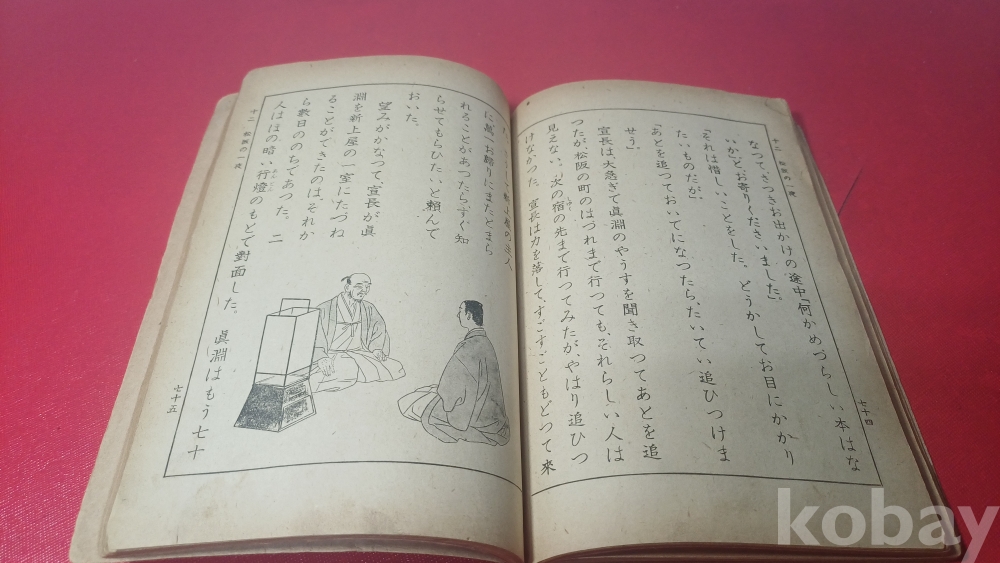 十二 松坂の一夜
なつて、さつきお出かけの途中『何かめづらしい本はな
いか』と、お寄りくださいました。」
「それは惜しいことをした。どうかしてお目にかかり
たいものだが。」
「あとを追つておいでになつたら、たいてい追ひつけま
せう。」
宣長は、大急ぎで眞淵のやうすを聞き取つてあとを追
つたが、松阪の町のはづれまで行つても、それらしい人は
見えない。次の宿の先まで行つてみたが、やはり追ひつ
けなかつた。宣長は力を落して、すごすごともどつて來
七十四
に、萬一お歸りにまたとまら
れることがあつたら、すぐ知
らせてもらひたいと頼んで
おいた。
望みがかなつて、宣長が眞
淵を新上屋の一室にたづね
ることができたのは、それか
ら數日ののちであつた。二
人は、ほの暗い行燈のもとで對面した。眞淵はもう七十
あんどん
十二 松坂の一夜
七十五
kobay